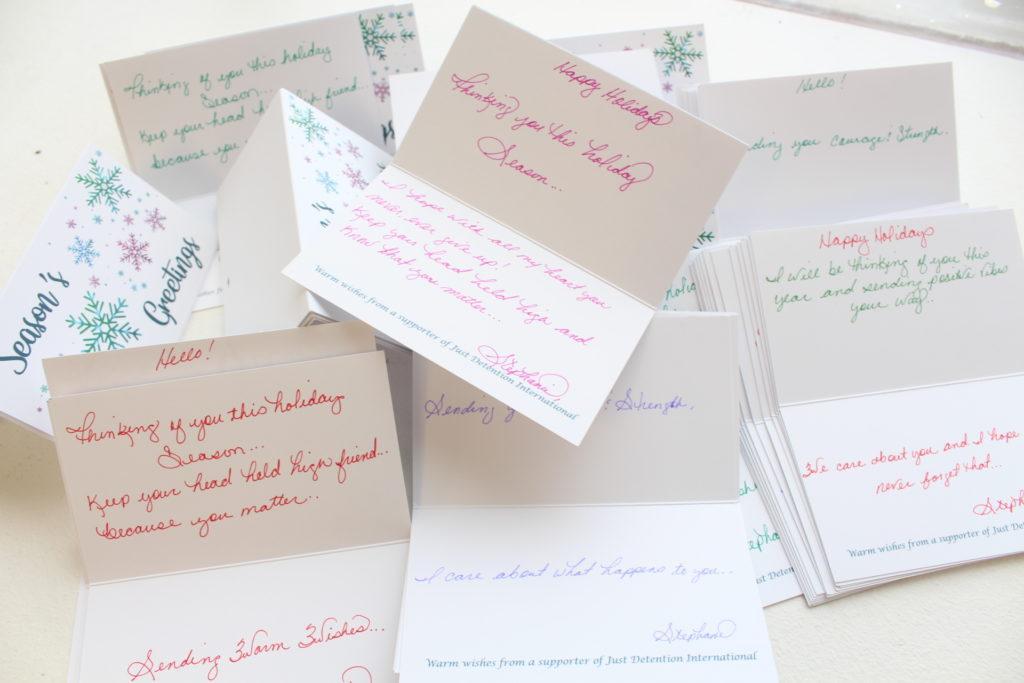 Thinking of you this holiday
Season...
Keep your head held high friend...
because you
Happy Holidays
Thinking you this holiday
Season...
I hope with all my heart you
never ever give up!
Keep your head held high and
Know that you matter...
Stephanie
Warm wishes from a supporter of Just Detention International
Hello!
you Courage! Strength.
Season's
Greetings
Happy Holidays
I will be thinking of you this
year and sending positive vibes
your way.
We care about you and I hope
never forget that...
Warm wishes from a supporter of Just De
Hello!
Thinking of you this holiday
Season...
Keep your head held high friend...
because you matter..
Sending Warm Wishes...
Sending
Strength.
I care about what happens to you...
Stephanie
Warm wishes from a supporter of Just Detention International